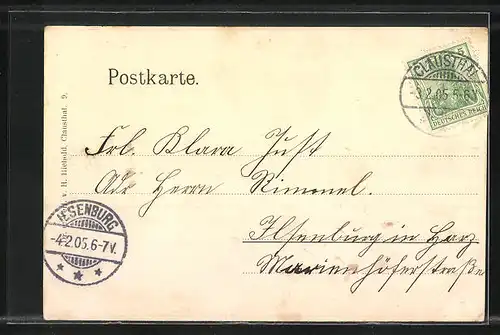 Postkarte.
CLAUSTHAL
3.2.05.5-6
DEUTSCHES REICH
v. H. Riehedd, Clausthal. 9.
Frl. Klara Just
Adr Herrn Rimmel.
Ilsenburg in Harz
Marienhöferstraße
ILSENBURG
-4.2.05.6-7V.